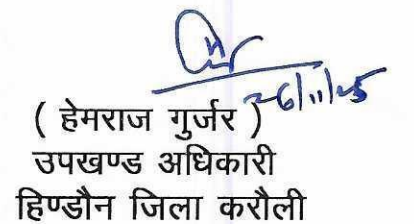 26/11/25
( हेमराज गुर्जर )
उपखण्ड अधिकारी
हिण्डौन जिला करौली